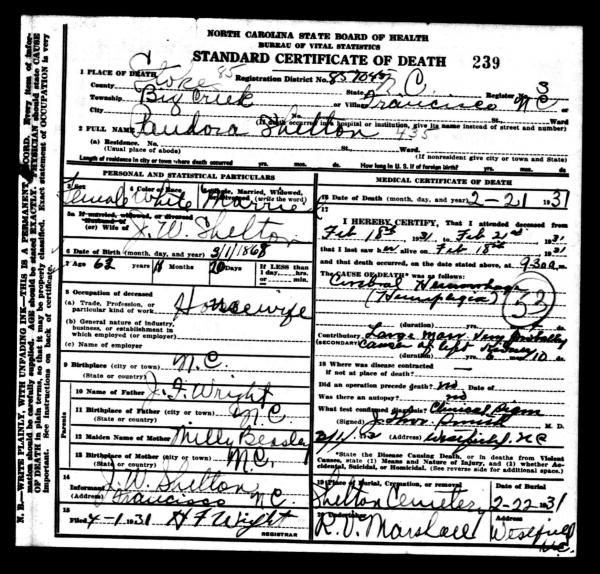 NORTH CAROLINA STATE BOARD OF HEALTH
BUREAU OF VITAL STATISTICS
STANDARD CERTIFICATE OF DEATH 239
1 PLACE OF DEATH
County Stokes 85 Registration District No. State N.C. Register No. 3
Township Big Creek or Village Francisco N.C.
City No. St. Ward
(If death occurred in a hospital or institution, give its name instead of street and number)
2 FULL NAME Pandora Shelton 435
(a) Residence. No. St. Ward
(Usual place of abode) (If nonresident give city or town and State)
Length of residence in city or town where death occurred yrs. mos. ds. How long in U. S. if of foreign birth? yrs. mos. ds.
PERSONAL AND STATISTICAL PARTICULARS
3 Sex Female 4 Color or Race White Single, Married, Widowed, Divorced (write the word) Married
5a If married, widowed, or divorced
Husband of
(or) Wife of J. W. Shelton
6 Date of Birth (month, day, and year) 3/1/1868
7 Age 62 11 Months 20 Days If LESS than
1 day, hrs.
or min.
8 Occupation of deceased
(a) Trade, Profession, or
particular kind of work Housewife
(b) General nature of industry,
business, or establishment in
which employed (or employer)
(c) Name of employer
9 Birthplace (city or town) N.C.
(State or country)
Parents
10 Name of Father J. F. Wright
11 Birthplace of Father (city or town) N C
(State or country)
12 Maiden Name of Mother Milly Beasley
13 Birthplace of Mother (city or town) N.C.
(State or country)
14 Informant J. W. Shelton
(Address) Francisco N.C.
15 Filed 4-1-1931 H F Wright
REGISTRAR
MEDICAL CERTIFICATE OF DEATH
16 Date of Death (month, day, and year) 2-21 1931
17
I HEREBY CERTIFY, That I attended deceased from
Feb 18th 1931 to Feb 21st 1931
that I last saw her alive on Feb 18th 1931
and that death occurred, on the date stated above, at 9:30 a.m.
The CAUSE OF DEATH* was as follows:
Cerebral Hemorrhage
(Hemiplegia) 32
(duration) yrs. mos. ds.
Contributory Large Mass Very Probably
(SECONDARY) Cancer of left Kidney
(duration) yrs. mos. 10 ds.
18 Where was disease contracted
if not at place of death?
Did an operation precede death? no Date of
Was there an autopsy? no
What test confirmed diagnosis? Clinical Signs
(Signed) Smith M. D.
(Address) Westfield, N.C
*State the Disease Causing Death, or in deaths from Violent
Causes, state (1) Means and Nature of Injury, and (2) whether Accidental, Suicidal, or Homicidal. (See reverse side for additional space.)
19 Place of Burial, Cremation, or removal Date of Burial
Shelton Cemetery 2-22-1931
20 Undertaker Address
R. V. Marshall Westfield N.C.
N. B.—WRITE PLAINLY, WITH UNFADING INK—THIS IS A PERMANENT RECORD. Every item of information should be carefully supplied. AGE should be stated EXACTLY. PHYSICIAN should state CAUSE OF DEATH in plain terms, so that it may be properly classified. Exact statement of OCCUPATION is very important. See instructions on back of certificate.